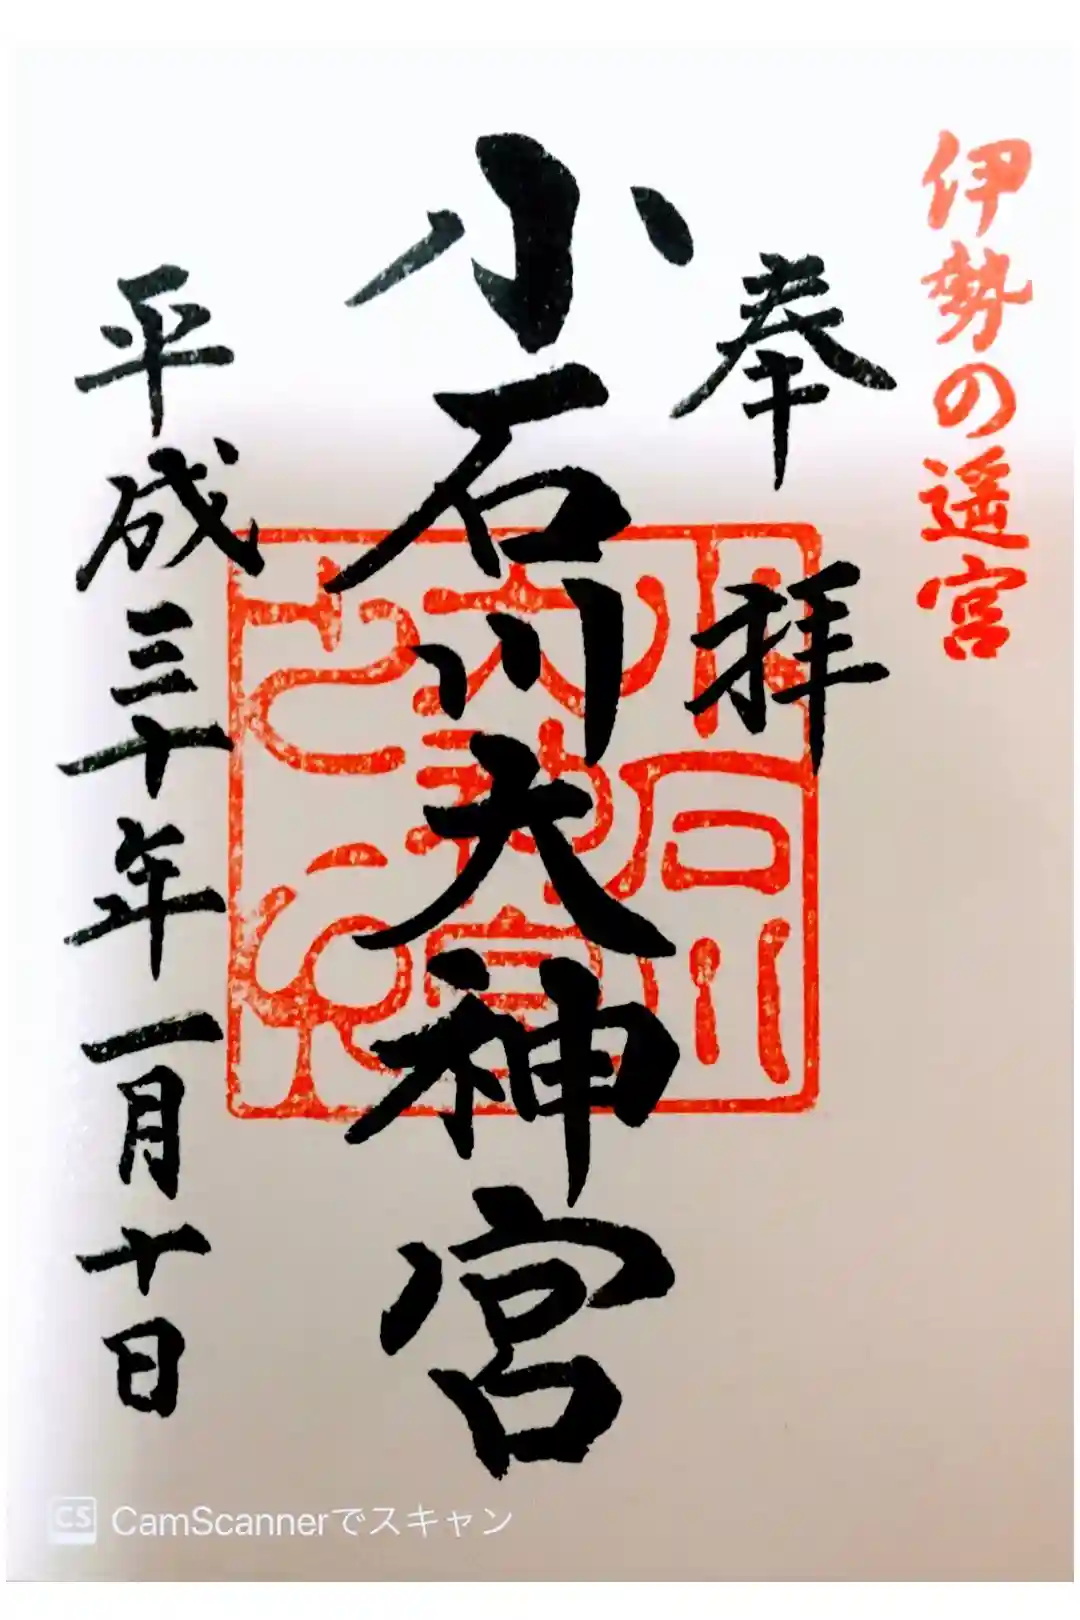 伊勢の遥宮
奉拝
小石川大神宮
平成三十年一月十日
小石川
大神宮
CS CamScannerでスキャン